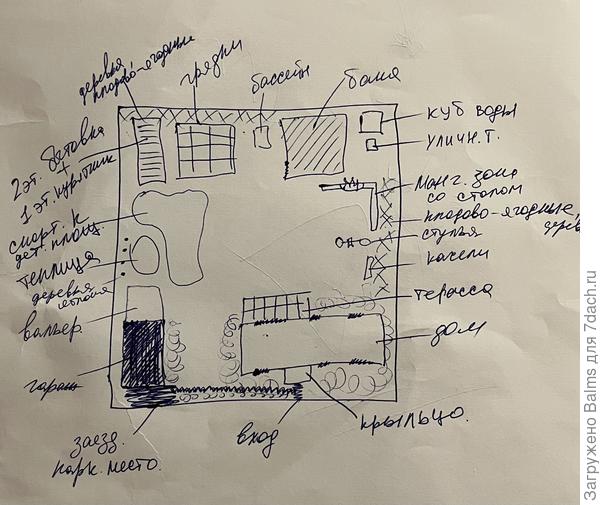 деревья
плодово-ягодные
грядки
бассейн
баня
куб воды
уличн. т.
манг. зона
со столом
плодово-ягодные
дерев
стулья
качели
терасса
дом
крыльцо.
вход
заезд.
парк. место.
гараж
вальер.
деревья
теплица
дет. площ.
спорт. к
1 эт. курятник
+
2 эт. бытовка
Загружено Balms для 7dach.ru